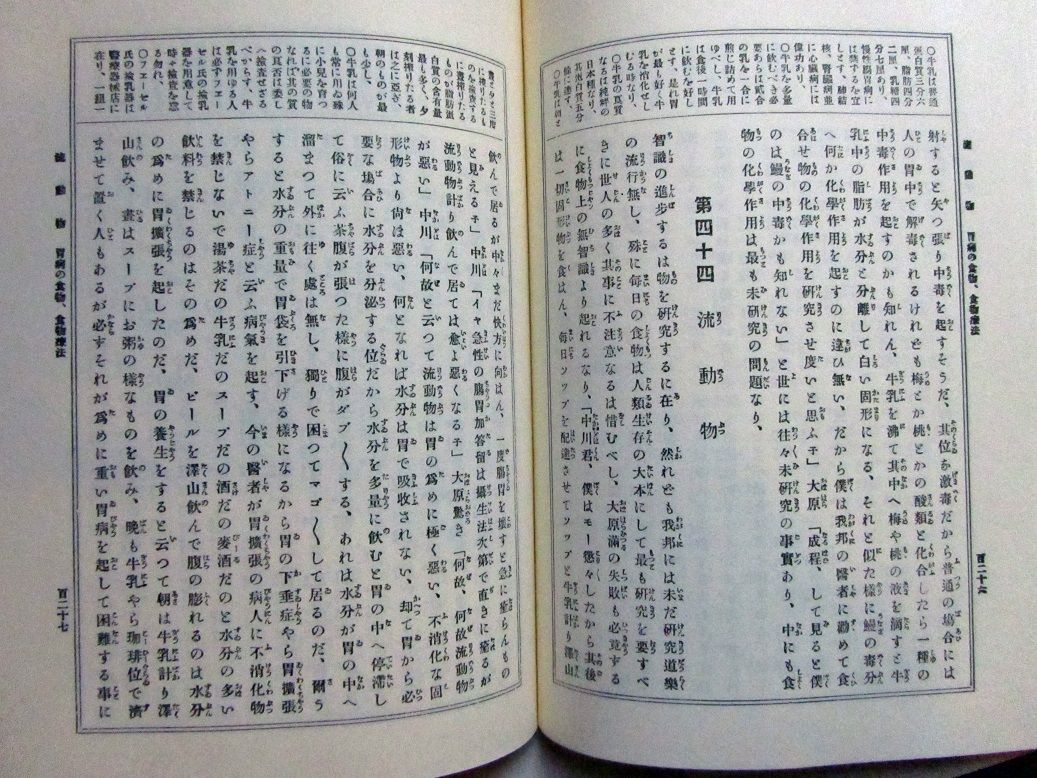 流動物 胃病の食物、食物療法
百二十六
○牛乳は普通
蛋白質三分六
厘、脂肪四分
二厘、乳糖四
分七厘あり、
慢性腸胃病に
は禁ずるを宜
しとす、肺結
核、腎臟病並
に心臟病には
偉功あり、
○牛乳を多量
に飲まざる必
要あらば貳合
の乳を一合に
煎じ詰めて用
ゆべし、牛乳
は食後一時間
に飲むを好し
とす、是れ胃
が最も好く牛
乳を消化せし
むる時なり、
○牛乳の良質
なるは純粹の
日本種なり、
其蛋白質五分
餘に達す、
○牛乳は朝と
射すると矢つ張り中毒を起すそうだ、其位な激毒だから普通の塲合には
人の胃中で解毒されるけれども梅とか桃とかの酸類と化合したら一種の
中毒作用を起すのかも知れん、牛乳を沸て其中へ梅や桃の液を滴すと牛
乳中の脂肪が水分と分離して白い固形になる、それと似た樣に鰻の毒分
へ何か化學作用を起すのに違ひ無い、だから僕は我邦の醫者に勸めて食
合せ物の化學作用を研究させ度いと思ふ子」大原「成程、して見ると僕
のは鰻の中毒かも知れない」と世には往々未研究の事實あり、中にも食
物の化學作用は最も未研究の問題なり、
第四十四 流動物
智識の進步するは物を研究するに在り、然れども我邦には未だ研究道樂
の流行無し、殊に毎日の食物は人類生存の大本にして最も研究を要すべ
きに世人の多く其事に不注意なるは惜むべし、大原滿の失敗も必竟する
に食物上の無智識より起れるなり、「中川君、僕はモー懲々したから其後
は一切固形物を食はん、毎日ソップを配達させてソップと牛乳計り澤山
晝と夕と三度
に搾りたるも
のを檢査する
に晝搾りたる
ものが脂肪蛋
白質の含有量
最も多く、夕
刻搾りたる者
は之に亞ぎ、
朝のものが最
も少し、
○牛乳は何人
も常に用ゐ殊
に小兒を育つ
るに必要の物
なれば其の質
の良否は委し
く檢査せざる
べからず、牛
乳を用ゆる人
は必ずフエー
セル氏の檢乳
器を用意して
時々檢査を怠
る勿れ、
○フエーゼル
氏の檢乳器は
醫療器械店に
在り、一組一
飲んで居るが中々まだ快方に向はん、一度腸胃を壞すと急に癒らんもの
と見える子」中川「イヤ急性の腸胃加答留は攝生法次第で直きに癒るが
流動物計り飲んで居ては愈よ惡くなる子」大原驚き「何故、何故流動物
が惡い」中川「何故と云つて流動物は胃の爲めに極く惡い、不消化な固
形物より尚ほ惡い、何となれば水分は胃で吸收されない、却て胃から必
要な塲合に水分を分泌する位だから水分を多量に飲むと胃の中へ停滯し
て俗に云ふ茶腹が張つた樣に腹がダブ〱する、あれは水分が胃の中へ
溜まつて外に往く處は無し、獨りで困つてマゴ〱して居るのだ、爾う
すると水分の重量で胃袋を引下げる樣になるから胃の下垂症やら胃擴張
やらアトニー症と云ふ病氣を起す、今の醫者が胃擴張の病人に不消化物
を禁じないで湯茶だの牛乳だのスープだの酒だの麥酒だのと水分の多い
飲料を禁じるのはその爲めだ、ビールを澤山飲んで腹の膨れるのは水分
の爲めに胃擴張を起したのだ、胃の養生をすると云つて朝は牛乳計り澤
山飲み、晝はスープにお粥の樣なものを飲み、晩も牛乳やら珈琲位で濟
ませて置く人もあるが必ずそれが爲めに重い胃病を起して困難する事に
流動物 胃病の食物、食物療法
百二十七